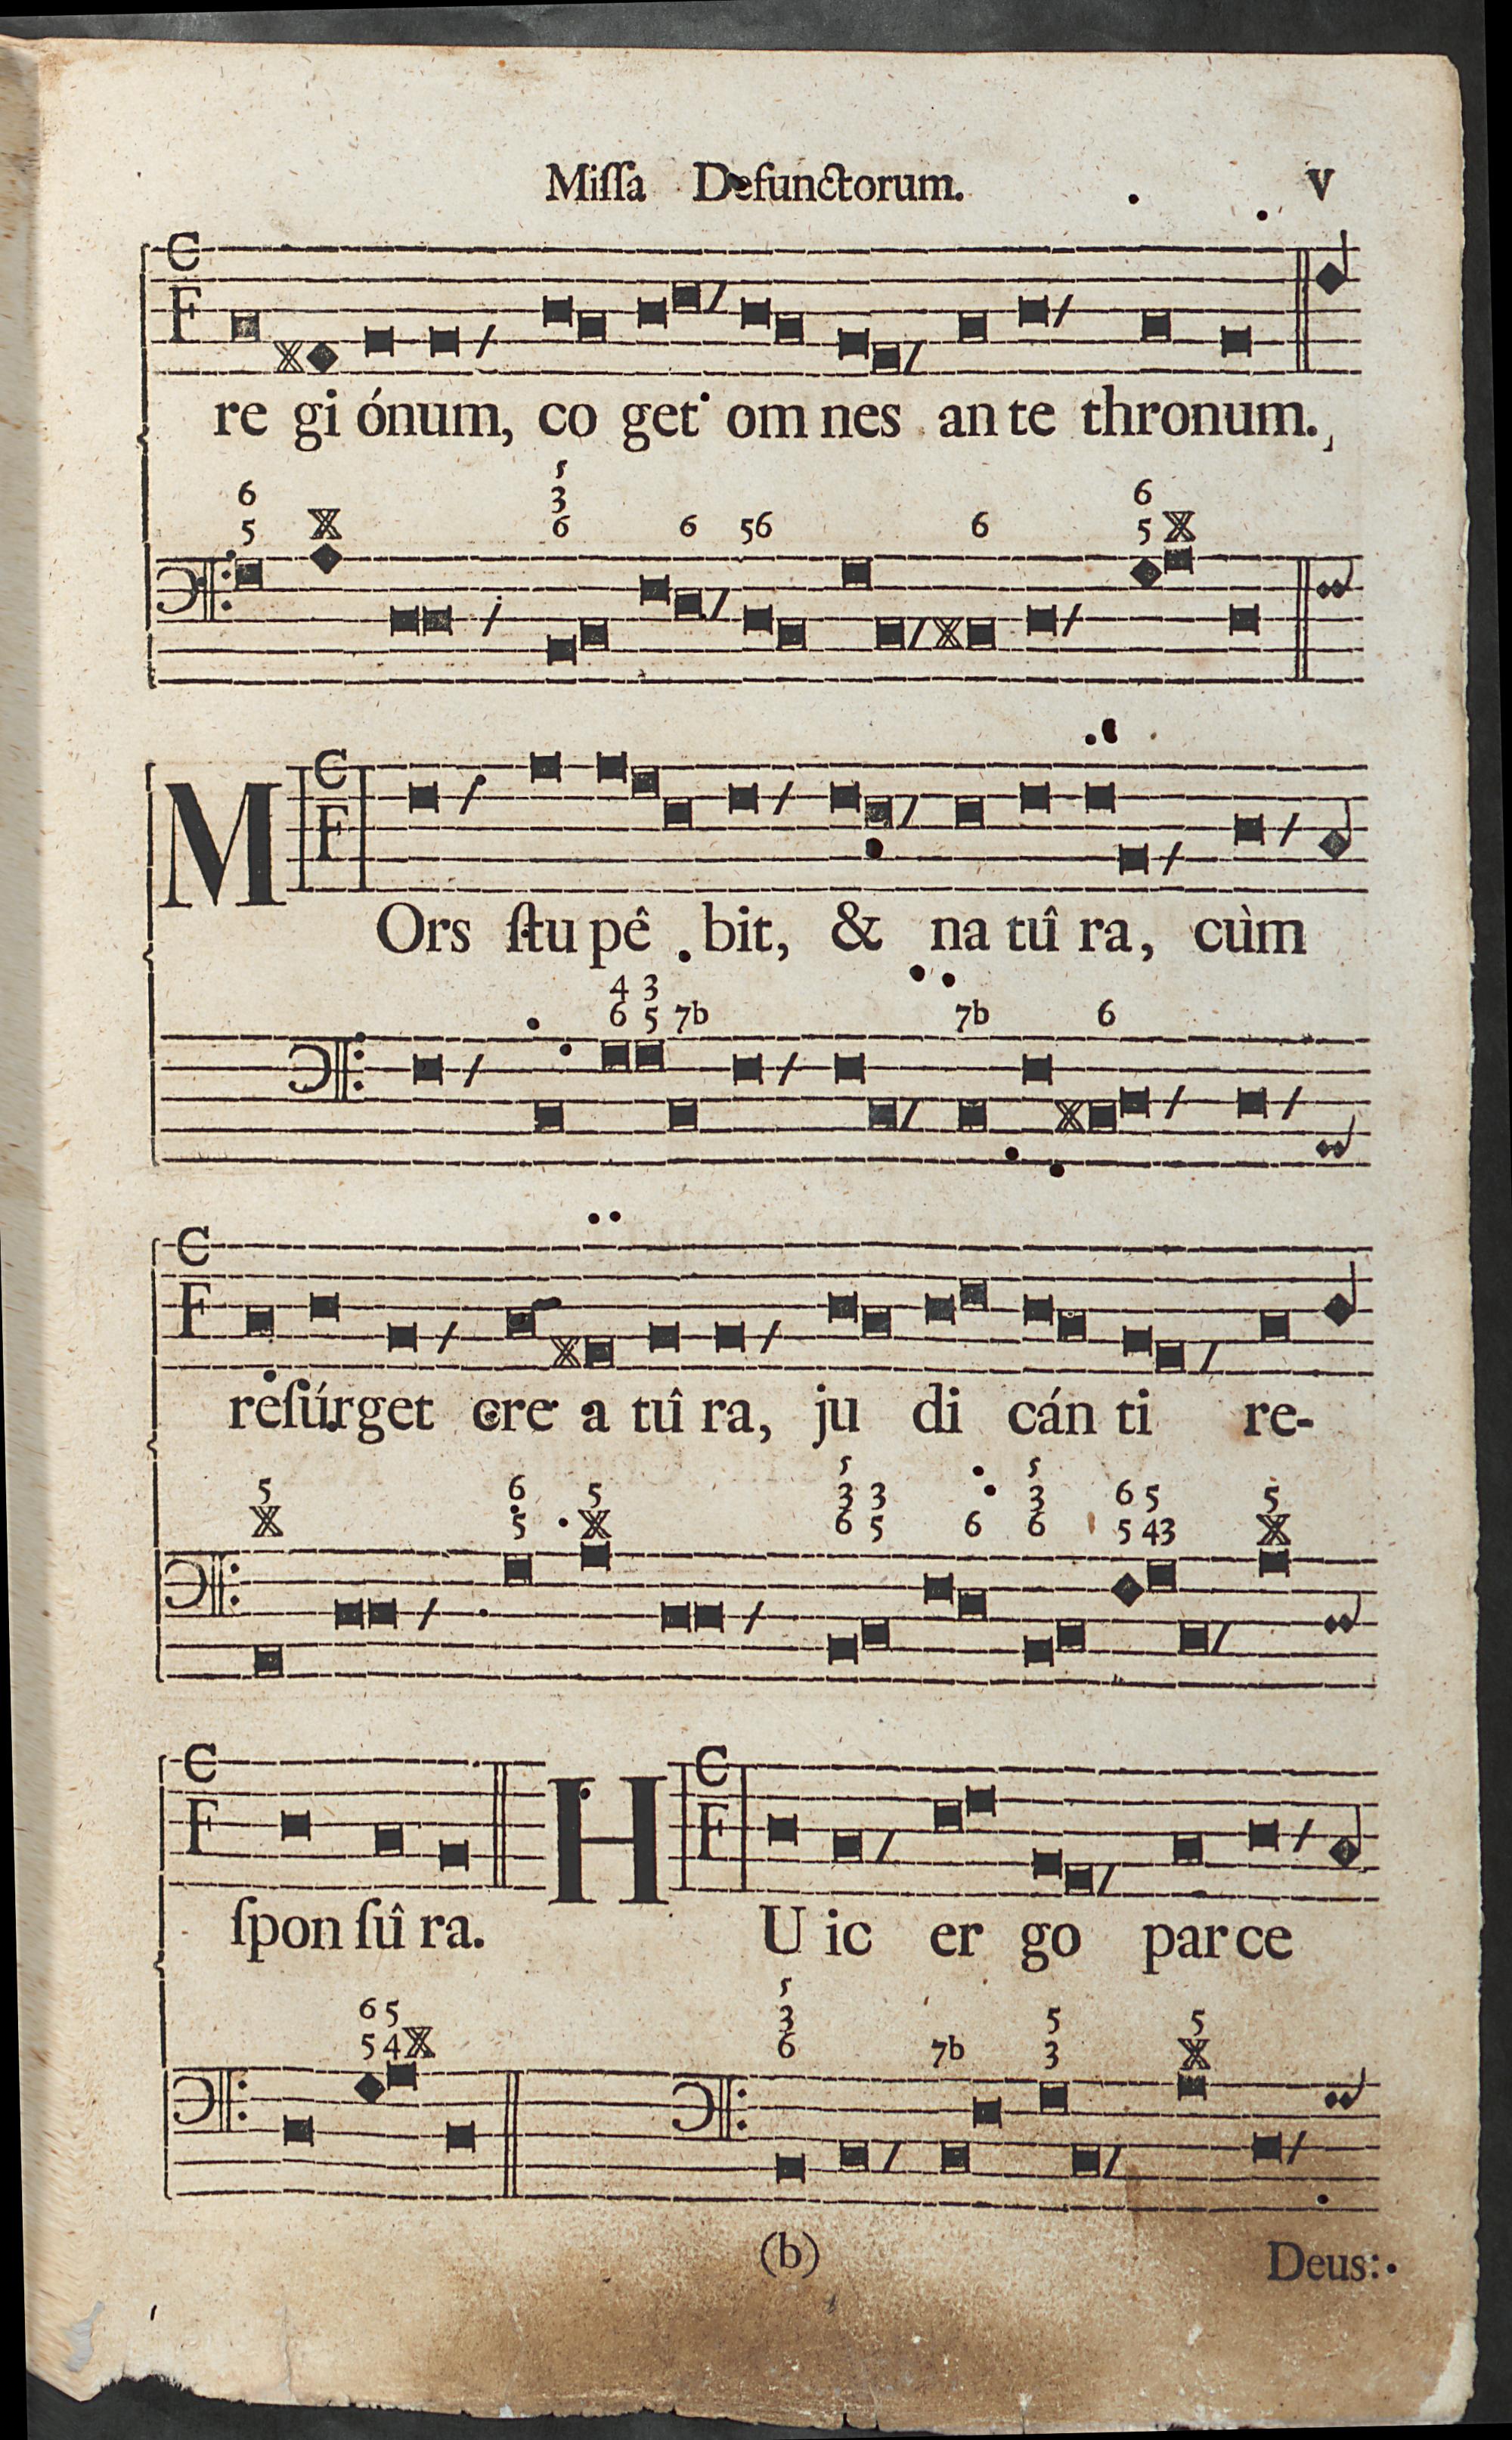 Miſſa Defunctorum. v
C
F
re gi ónum, co get om nes an te thronum.
5
6 3 6
5 X 6 6 56 6 5 X
C
F
M
Ors ſtu pê bit, & na tuî ra, cùm
4 3
6 5 7b 7b 6
C
F
reſúrget cre a tuî ra, ju di cán ti re-
5 5
5 6 5 3 3 3 6 5 5
X 5 X 6 5 6 6 5 43 X
C
F
H
C
F
ſpon ſuî ra. U ic er go par ce
5
6 5 3 5 5
5 4 X 6 7b 3 X
(b) Deus: